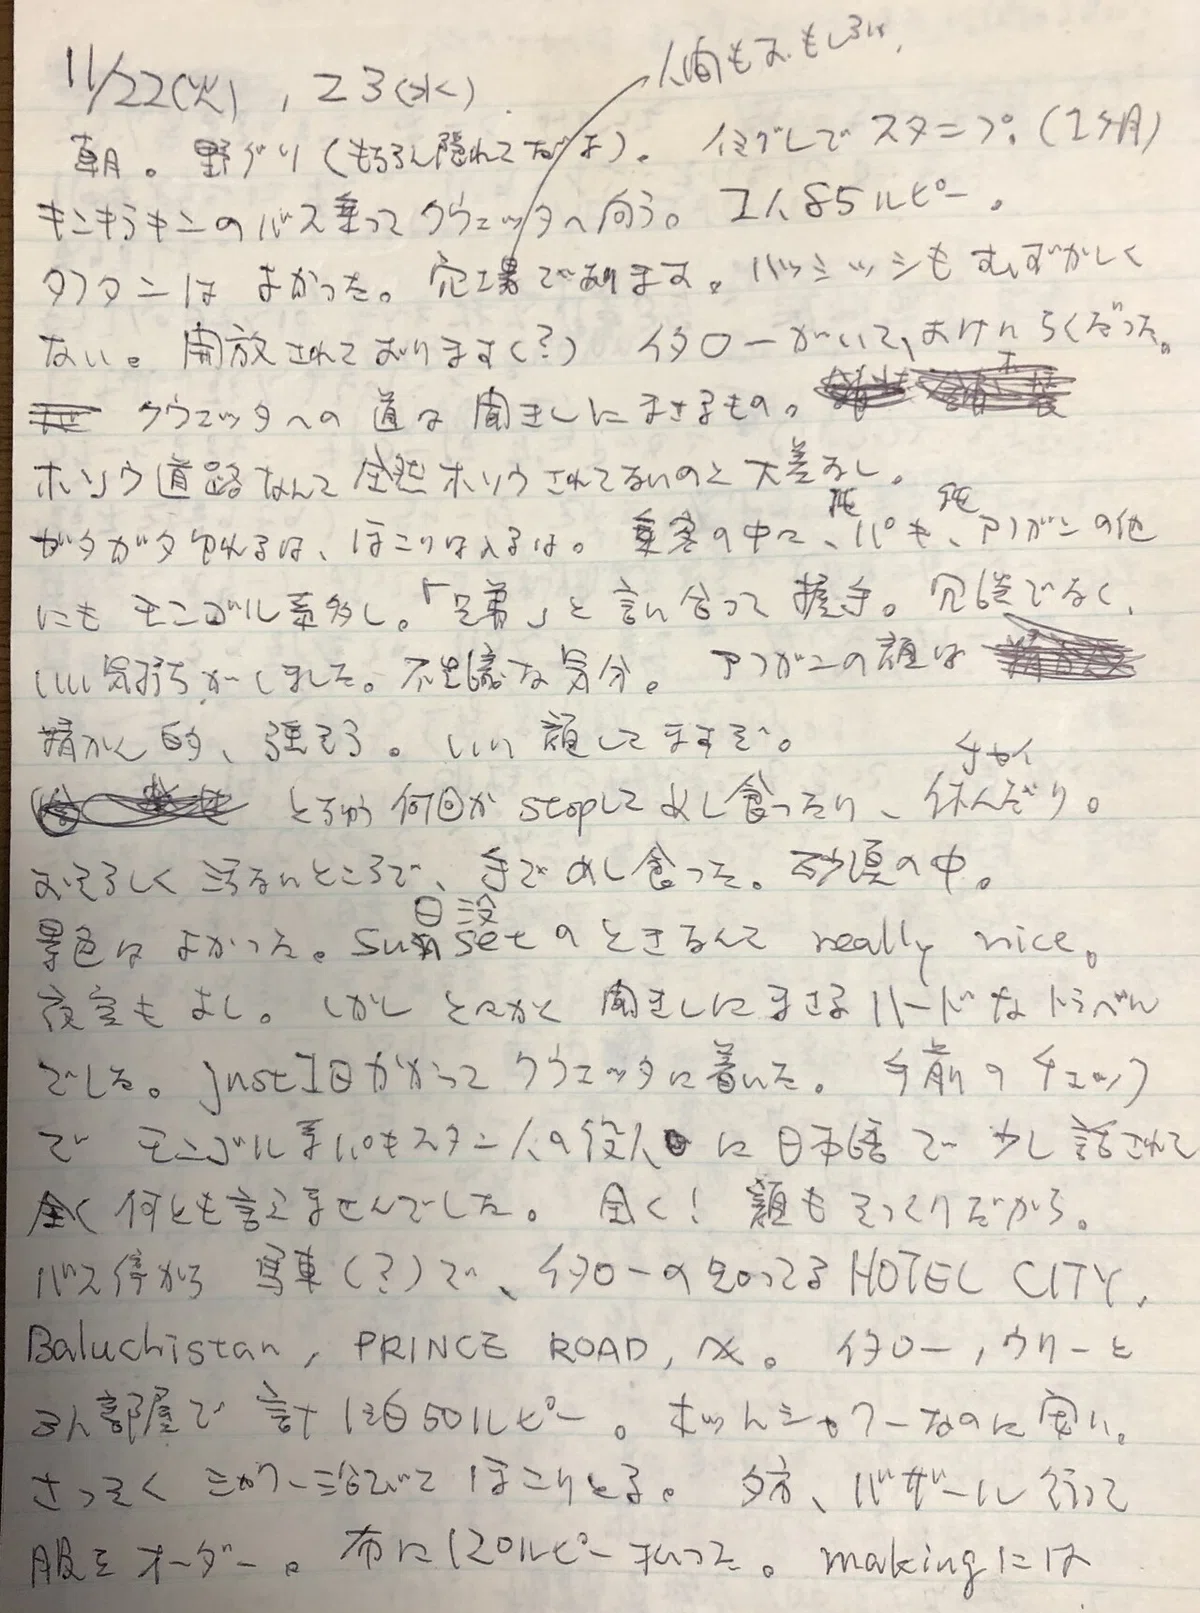 人間もおもしろい.
11/22(火), 23(水).
朝。野グソ(もちろん隠れてだよ)。イミグレでスタンプ。(1ヶ月)
キンキラキンのバス乗ってクウェッタへ向う。1人85ルピー。
タフタンは よかった。穴場であります。バクシーシもむずかしく
ない。開放されております(?) イタローがいて、おけん らくだった。
クウェッタへの道は 聞きしにまさるもの。
ホソウ道路なんて全然ホソウされてないのと大差なし。
ガタガタ ゆれるは、ほこりは入るは。乗客の中に、パキ、アフガンの他
にも モンゴル系多し。「兄弟」と言い合って握手。冗談でなく、
いい気持ちがしました。不思議な気分。アフガンの顔は
精かん的、強そう。いい顔してますぞ。
とちゅう何回かstopしてめし食ったり、チャイ休んだり。
おそろしく汚ないところで、手でめし食った。砂漠の中。
景色は よかった。sunset日没のときなんて really nice。
夜空もよし。しかし とにかく 聞きしにまさるハードなトラベル
でした。just1日かかってクウェッタに着いた。手前のチェック
で モンゴル系パキスタン人の役人に日本語で少し話されて
全く何とも言えませんでした。全く! 顔もそっくりだから。
バス停から 馬車(?)で、イタローの知ってるHOTEL CITY,
Baluchistan, PRINCE ROAD, へ。イタロー, ウリーと
3人部屋で計1泊50ルピー。ホットシャワーなのに安い。
さっそく シャワー浴びて ほこりとる。夕方、バザール行って
服をオーダー。布に120ルピー払った。makingには